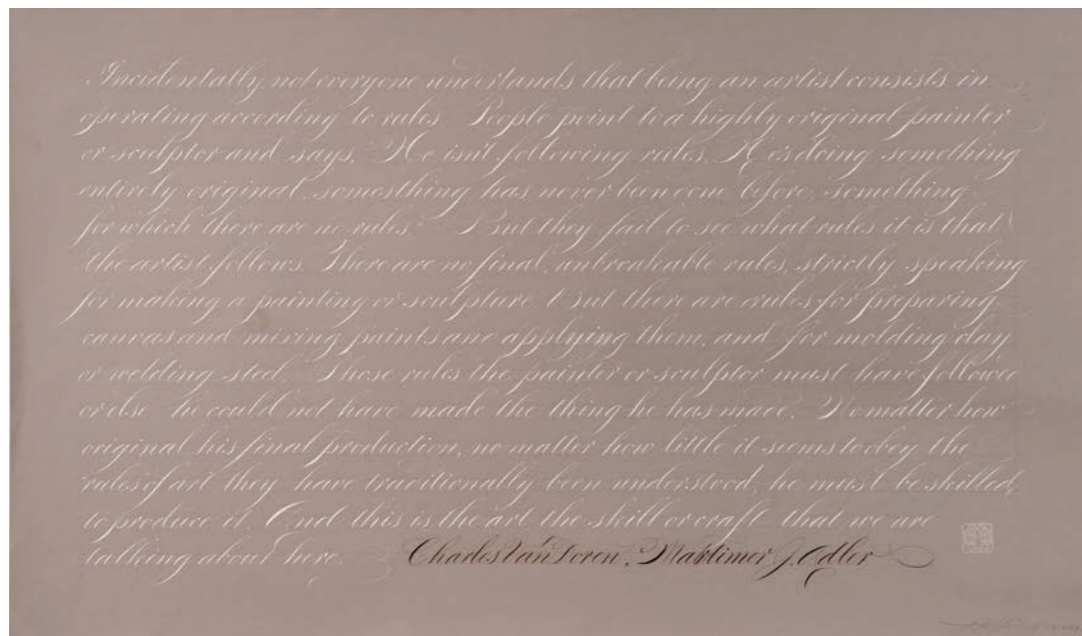 Incidentally, not everyone understands that being an artist consists in
operating according to rules. People point to a highly original painter
or sculptor and says, "He isn't following rules. He is doing something
entirely original, somesthing has never been done before, something
for which there are no rules." But they fail to see what rules it is that
the artist follows. There are no final, unbreakable rules, strictly speaking
for making a painting or sculpture. But there are rules for preparing
canvas and mixing paints and applying them, and for molding clay
or welding steel. Those rules the painter or sculptor must have followed
or else he could not have made the thing he has made. No matter how
original his final production, no matter how little it seems to obey the
rules of art they have traditionally been understood, he must be skilled
to produce it. And this is the art the skill or craft that we are
talking about here. Charles Van Doren, Mortimer J. Adler